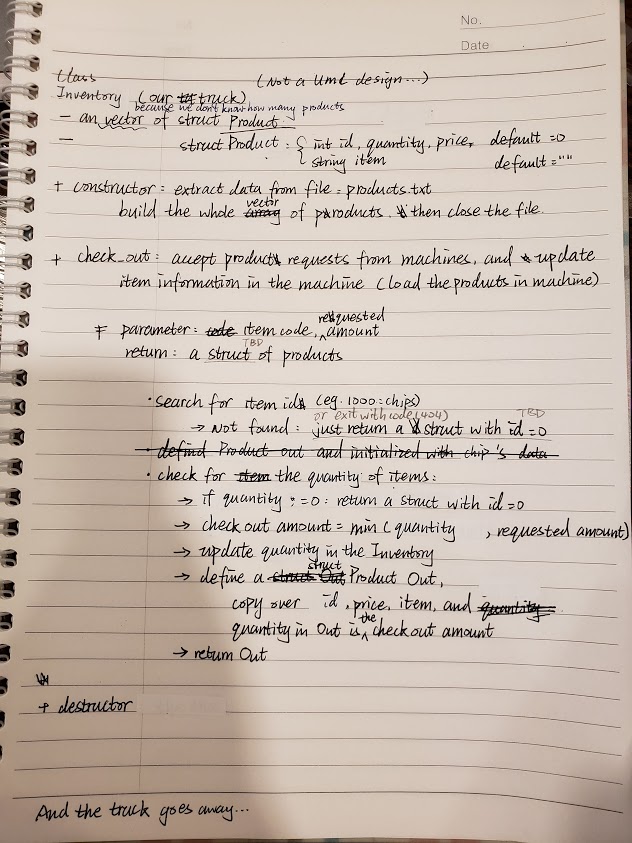 No.
Date
Class (Not a UML design...)
Inventory (our truck)
because we don't know how many products
- an vector of struct Product
- struct Product : { int id, quantity, price, default = 0
string item default = ""
+ constructor : extract data from file = products.txt
build the whole array vector of products. then close the file.
+ check_out : accept product requests from machines, and update
item information in the machine (load the products in machine)
parameter : code item code, requested amount
return : a struct of products
TBD
· search for item id (eg. 1000 = chips)
or exit with code (404) TBD
→ Not found : just return a struct with id = 0
· defind Product out and initialized with chip's data
· check for item the quantity of items :
→ if quantity == 0 : return a struct with id = 0
→ check out amount = min (quantity , requested amount)
→ update quantity in the Inventory
→ define a struct Out struct Product Out,
copy over id, price, item, and quantity
quantity in Out is the check out amount
→ return Out
+ destructor
And the truck goes away...